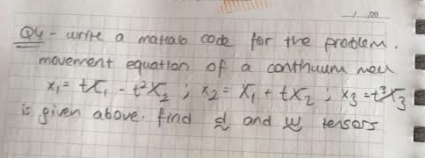 Q4 - write a matlab code for the problem.
movement equation of a continuum
x₁ = tX₁ - t²X₂ ; x₂ = X₁ + tX₂ ; x₃ = t³X₃
is given above. find d and w tensors